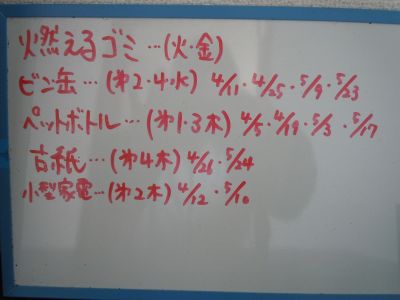 燃えるゴミ…(火・金)
ビン缶…(第2・4・水) 4/11・4/25・5/9・5/23
ペットボトル…(第1・3木) 4/5・4/19・5/3・5/17
古紙…(第4木) 4/26・5/24
小型家電…(第2木) 4/12・5/10